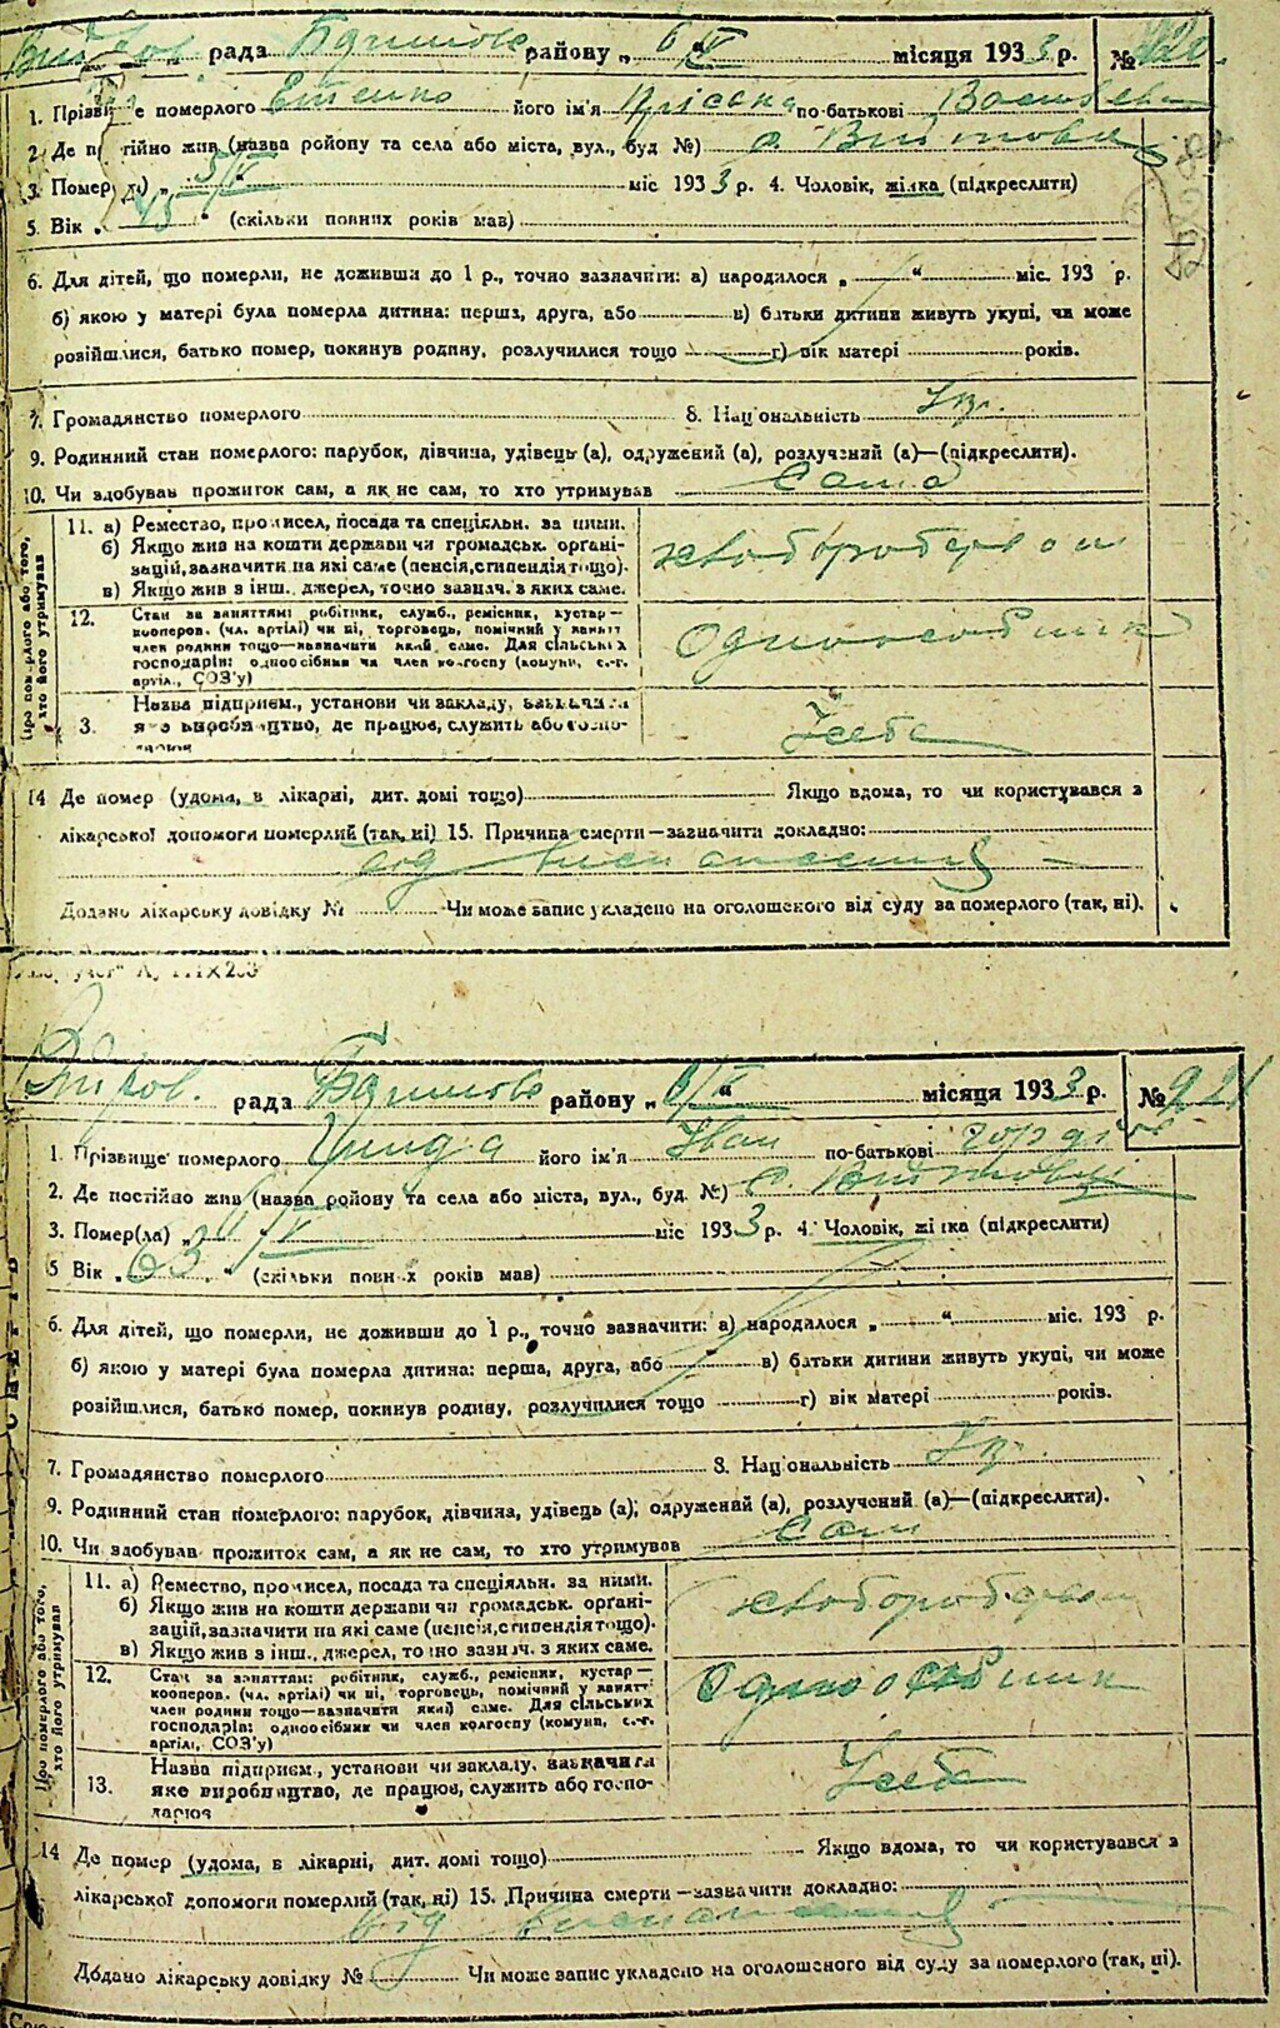 рада районy „ 6 V " місяця 1933 р. №
1. Прізвище померлого його ім'я по-батькові
2. Де постійно жив (назва ройону та села або міста, вул., буд №) с.
3. Помер(ла) „ 5/V " міс 1933 р. 4. Чоловік, жінка (підкреслити)
5. Вік „ 45 " (скільки повних років мав)
6. Для дітей, що померли, не доживши до 1 р., точно зазначити: а) народилося „ " міс. 193 р.
б) якою у матері була померла дитина: перша, друга, або в) батьки дитини живуть укупі, чи може
розійшлися, батько помер, покинув родину, розлучилися тощо г) вік матері років.
7. Громадянство померлого 8. Національність Укр.
9. Родинний стан померлого: парубок, дівчина, удівець (а), одружений (а), розлучений (а)—(підкреслити).
10. Чи здобував прожиток сам, а як не сам, то хто утримував Сама
Про померлого або того,
хто його утримував
11. а) Ремество, промисел, посада та спеціяльн. за ними.
б) Якщо жив на кошти держави чи громадськ. органі-
зацій, зазначити на які саме (пенсія, стипендія тощо).
в) Якщо жив з інш. джерел, точно зазнач. з яких саме.
хлібороб
12. Стан за заняттям: робітник, служб., ремісник, кустар—
кооперов. (чл. артілі) чи ні, торговець, помічний у занятт
член родини тощо—зазначити який саме. Для сільських
господарів: одноосібник чи член колгоспу (комуни, с.-г.
артіл., СОЗ'у)
Одноосібник
Назва підприєм., установи чи закладу, зазначити
3. яке виробництво, де працює, служить або госпо-
дарює
У себе
14 Де помер (удома, в лікарні, дит. домі тощо) Якщо вдома, то чи користувався з
лікарської допомоги померлий (так, ні) 15. Причина смерти—зазначити докладно:
від виснаження
Додано лікарську довідку № Чи може запис укладено на оголошеного від суду за померлого (так, ні).
рада районy „ 6/V " місяця 1933 р. № 921
1. Прізвище померлого його ім'я Іван по-батькові Гордіев
2. Де постійно жив (назва ройону та села або міста, вул., буд. №) с.
3. Помер(ла) „ /V міс 1933 р. 4. Чоловік, жінка (підкреслити)
5 Вік „ 63 " (скільки повних років мав)
6. Для дітей, що померли, не доживши до 1 р., точно зазначити: а) народилося „ " міс. 193 р.
б) якою у матері була померла дитина: перша, друга, або в) батьки дитини живуть укупі, чи може
розійшлися, батько помер, покинув родину, розлучилися тощо г) вік матері років.
7. Громадянство померлого 8. Національність Укр.
9. Родинний стан померлого: парубок, дівчина, удівець (а), одружений (а), розлучений (а)—(підкреслити).
10. Чи здобував прожиток сам, а як не сам, то хто утримував Сам
Про померлого або того,
хто його утримував
11. а) Ремество, промисел, посада та спеціяльн. за ними.
б) Якщо жив на кошти держави чи громадськ. органі-
зацій, зазначити на які саме (пенсія, стипендія тощо).
в) Якщо жив з інш. джерел, точно зазнач. з яких саме.
хлібороб
12. Стан за заняттям: робітник, служб., ремісник, кустар—
кооперов. (чл. артілі) чи ні, торговець, помічний у занятт
член родини тощо—зазначити який саме. Для сільських
господарів: одноосібник чи член колгоспу (комуни, с.-г.
артілі, СОЗ'у)
Одноосібник
Назва підприєм., установи чи закладу, зазначити
13. яке виробництво, де працює, служить або госпо-
дарює
У себе
14 Де помер (удома, в лікарні, дит. домі тощо) Якщо вдома, то чи користувався з
лікарської допомоги померлий (так, ні) 15. Причина смерти—зазначити докладно:
від виснаження
Додано лікарську довідку № Чи може запис укладено на оголошеного від суду за померлого (так, ні).